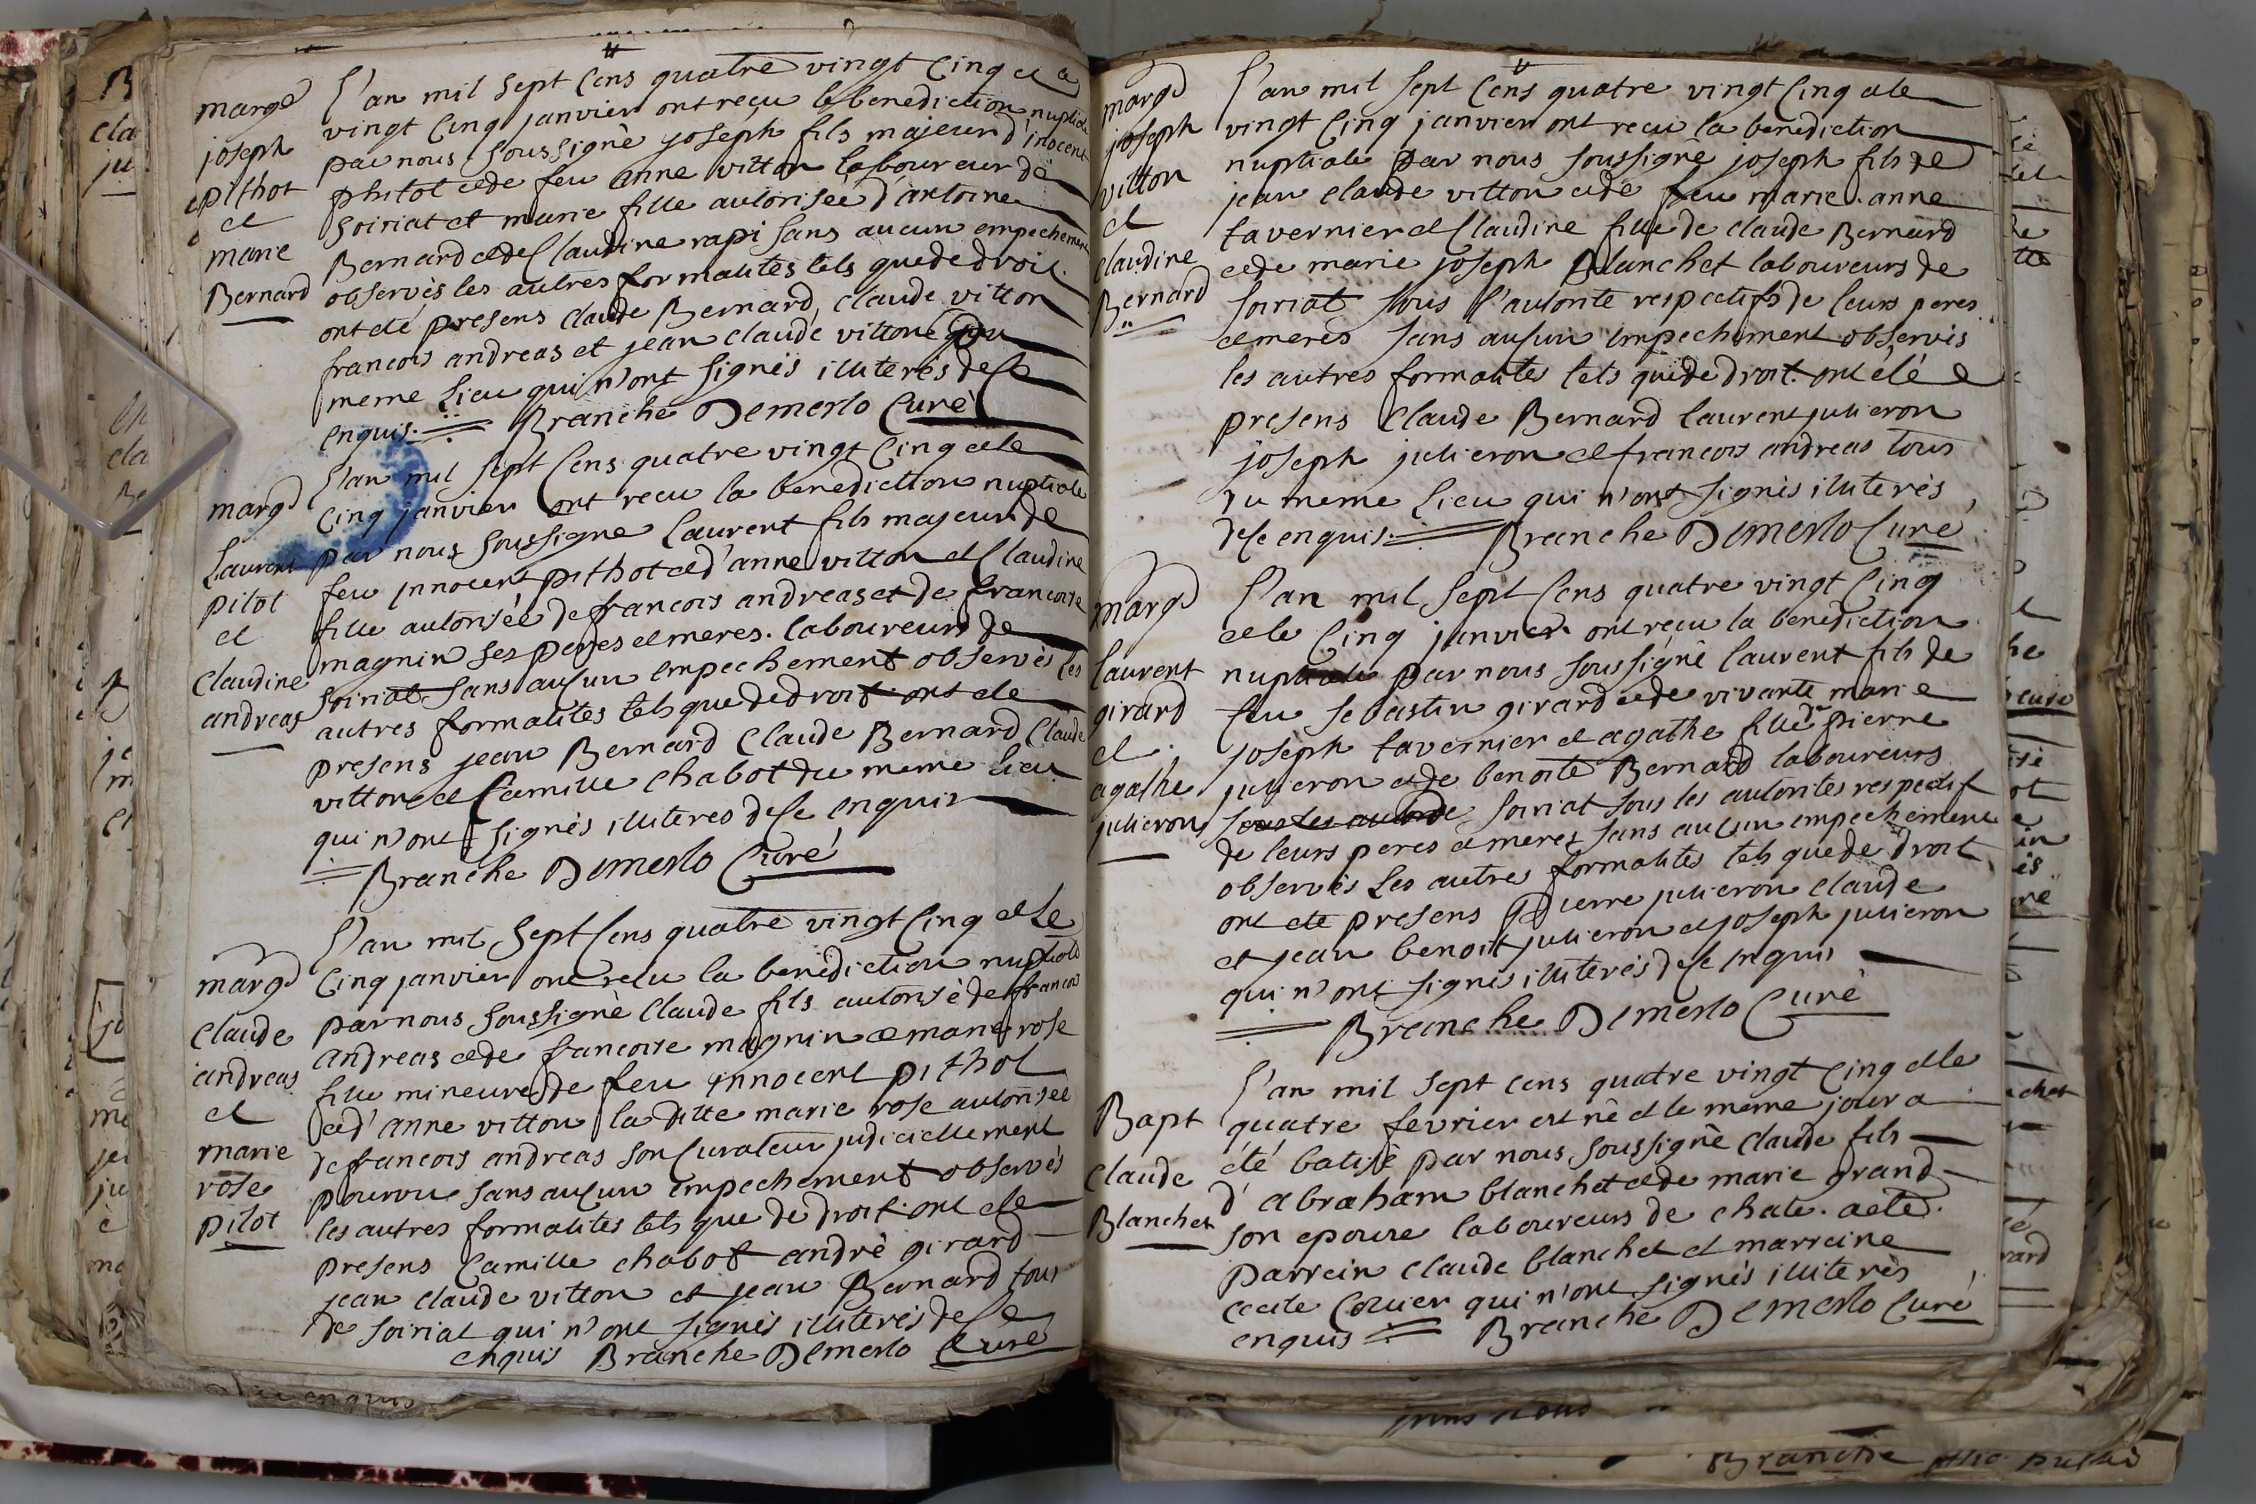 marge
joseph
pithot
et
marie
Bernard
L'an mil sept Cens quatre vingt Cinq et a
vingt Cinq janvier ont reçu la benediction nuptiale
par nous soussigné joseph fils majeur d'inocent
phitot et de feu anne vitton laboureur de
soiriat et marie fille autorisée d'antoine
Bernard et de Claudine rapi sans aucun empechement
observés les autres formalités tels que de droit.
ont été presens claude Bernard, claude vitton
francois andreas et jean claude vittone du
meme Lieu qui n'ont signés illiterés de ce
enquis. Branche Demerlo Curé
marge
Laurent
pitot
et
claudine
andreas
L'an mil sept Cens quatre vingt Cinq et le
Cinq janvier ont recu la benediction nuptiale
par nous soussigne Laurent fils majeur de
feu innocent pithot et d'anne vitton et Claudine
fille autorisée de francois andreas et de francoise
magnin ses peres et meres. laboureurs de
soiriat sans auçun empechement observés les
autres formalités tels que de droit. ont ete
presens jean Bernard Claude Bernard Claude
vittone et Camille chabot du meme Lieu
qui n'ont signés illiteres de ce enquis
Branche Demerlo Curé
marge
Claude
andreas
et
marie
rose
pitot
L'an mil sept Cens quatre vingt Cinq et Le
Cinq janvier ont recu la benediction nuptiale
par nous soussigné Claude fils autorisé de francois
andreas et de francoise magnin et marie rose
fille mineure de feu innocent pithot
et d'anne vitton la ditte marie rose autorisée
de francois andreas son Curateur judiciellement
pourvue sans auçun empechement observés
les autres formalités tels que de droit. ont ete
presens Camille chabot andré girard
jean claude vitton et jean Bernard tous
de soiriat qui n'ont signés illiterés de ce
enquis Branche Demerlo Curé
marge
joseph
vitton
et
claudine
Bernard
L'an mil sept Cens quatre vingt Cinq et le
vingt Cinq janvier ont recu la benediction
nuptiale par nous soussigné joseph fils de
jean claude vitton et de feu marie anne
tavernier et Claudine fille de claude Bernard
et de marie joseph Blanchet laboureurs de
soiriat sous l'autorité respectifs de leurs peres
et meres sans auçun empechement observés
les autres formalités tels que de droit. ont été
presens Claude Bernard laurent julieron
joseph julieron et francois andreas tous
du meme Lieu qui n'ont signés illiterés
de ce enquis. Branche Demerlo Curé
marge
laurent
girard
et
agathe
julieron
L'an mil sept Cens quatre vingt Cinq
et le Cinq janvier. ont reçu la benediction
nuptiale par nous soussigné laurent fils de
feu sebastin girard et de vivante marie
joseph tavernier et agathe fille de pierre
julieron et de benoite Bernard laboureurs
sous les autorité soiriat sous les autorités respectif
de leurs peres et meres sans auçun empechement
observés Les autres formalités tels que de droit
ont ete presens pierre julieron claude
et jean benoit julieron et joseph julieron
qui n'ont signés illiterés de ce enquis
Branche Demerlo Curé
Bapt
Claude
Blanchet
L'an mil sept cens quatre vingt Cinq et le
quatre fevrier est né et le meme jour a
été batisé par nous soussigné claude fils
d'abraham blanchet et de marie grand
son epouse laboureurs de chate. a ete
parrein claude blanchet et marreine
cecile Cottier qui n'ont signés illiterés
enquis Branche Demerlo Curé